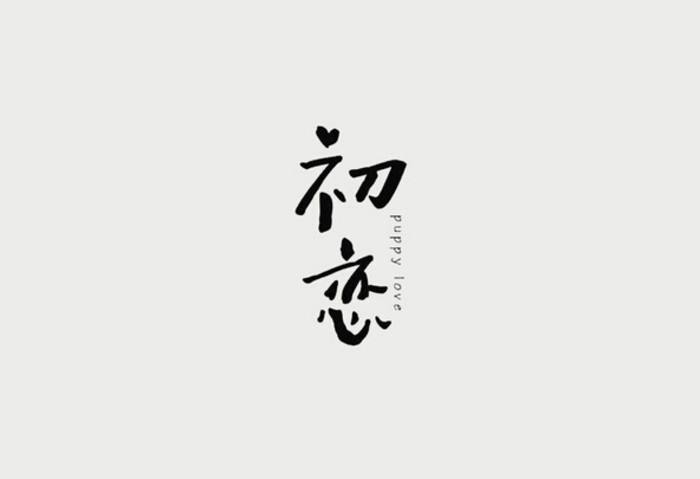 初恋
puppy love